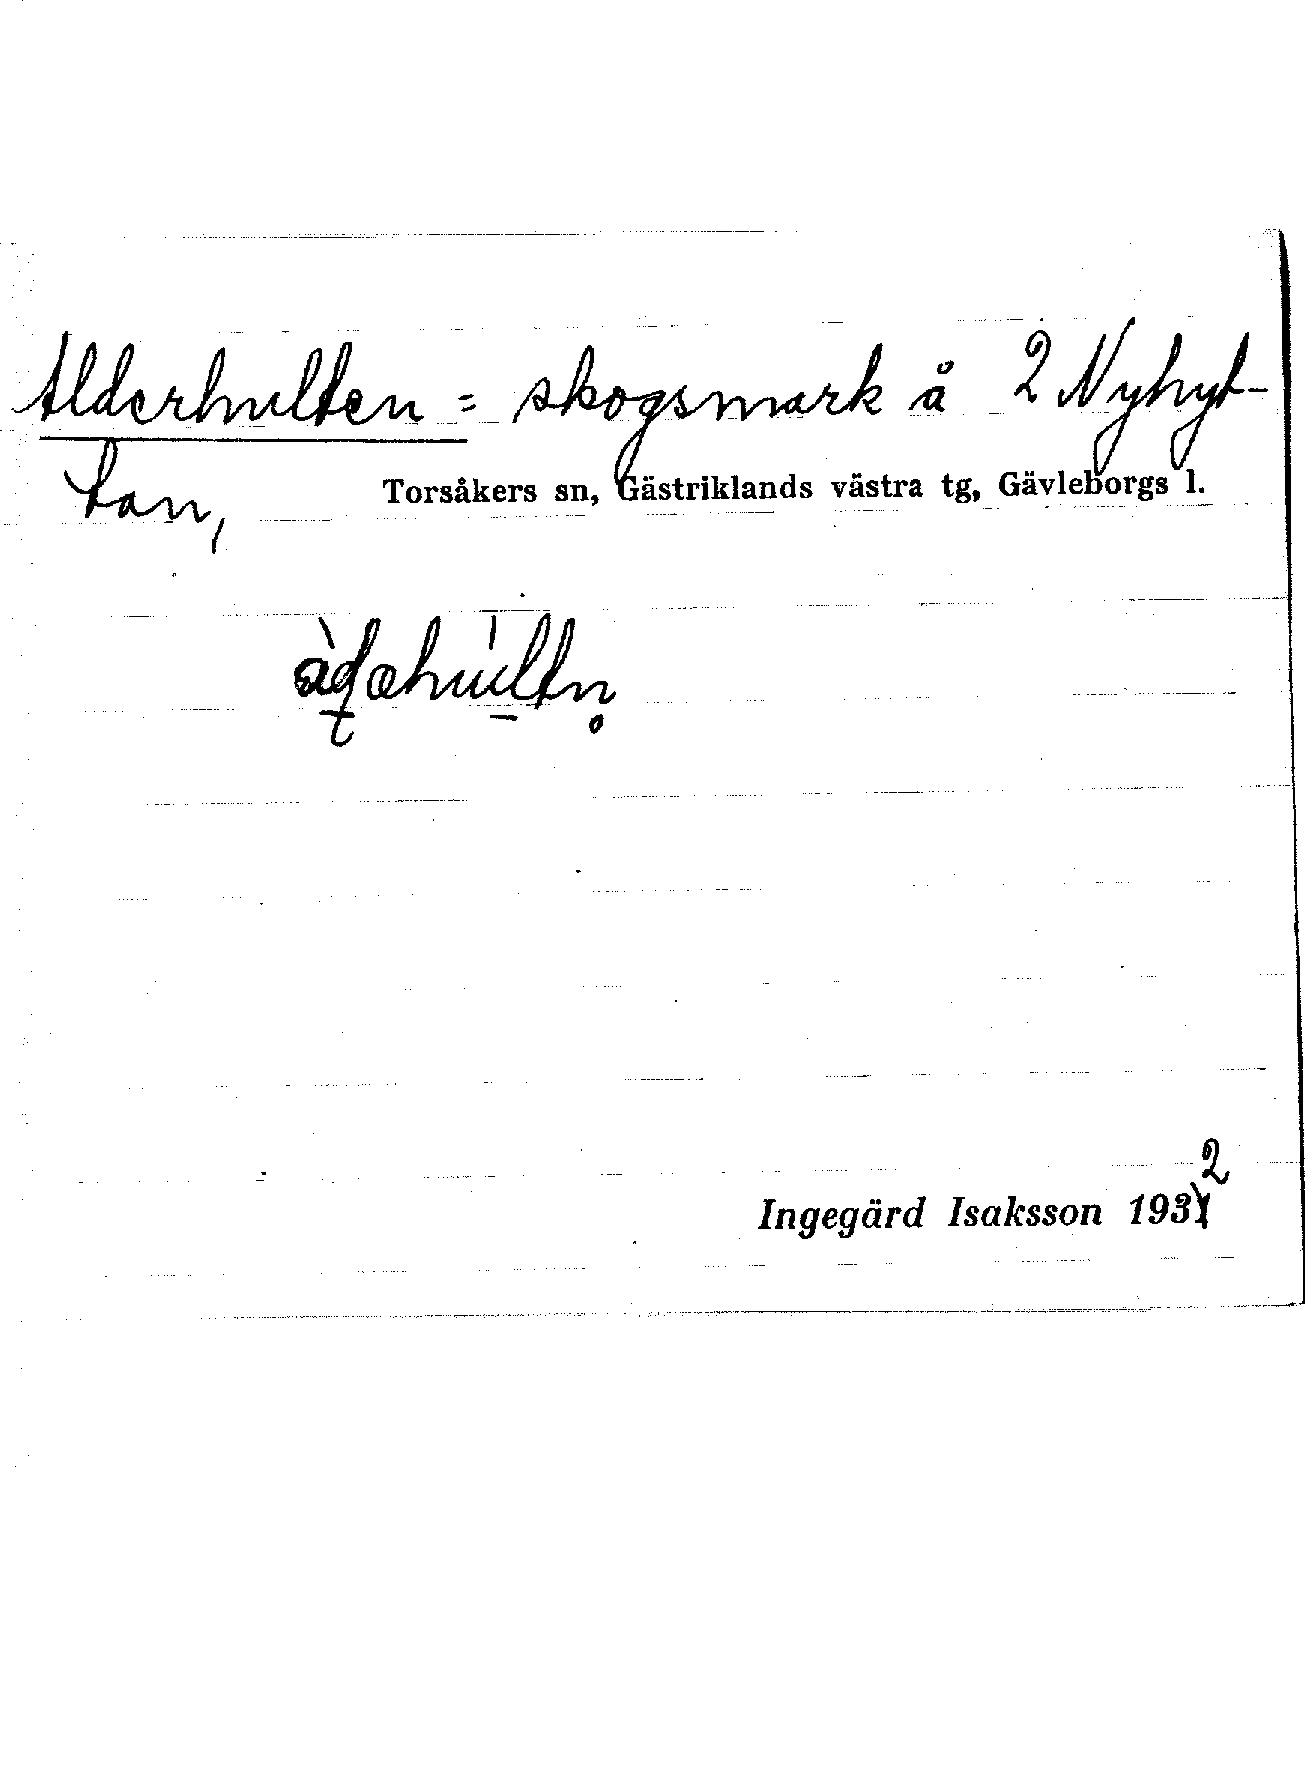 Alderhulten = skogsmark å 2 Nyhyt-
tan,
Torsåkers sn, Gästriklands västra tg, Gävleborgs l.
2
Ingegärd Isaksson 1931